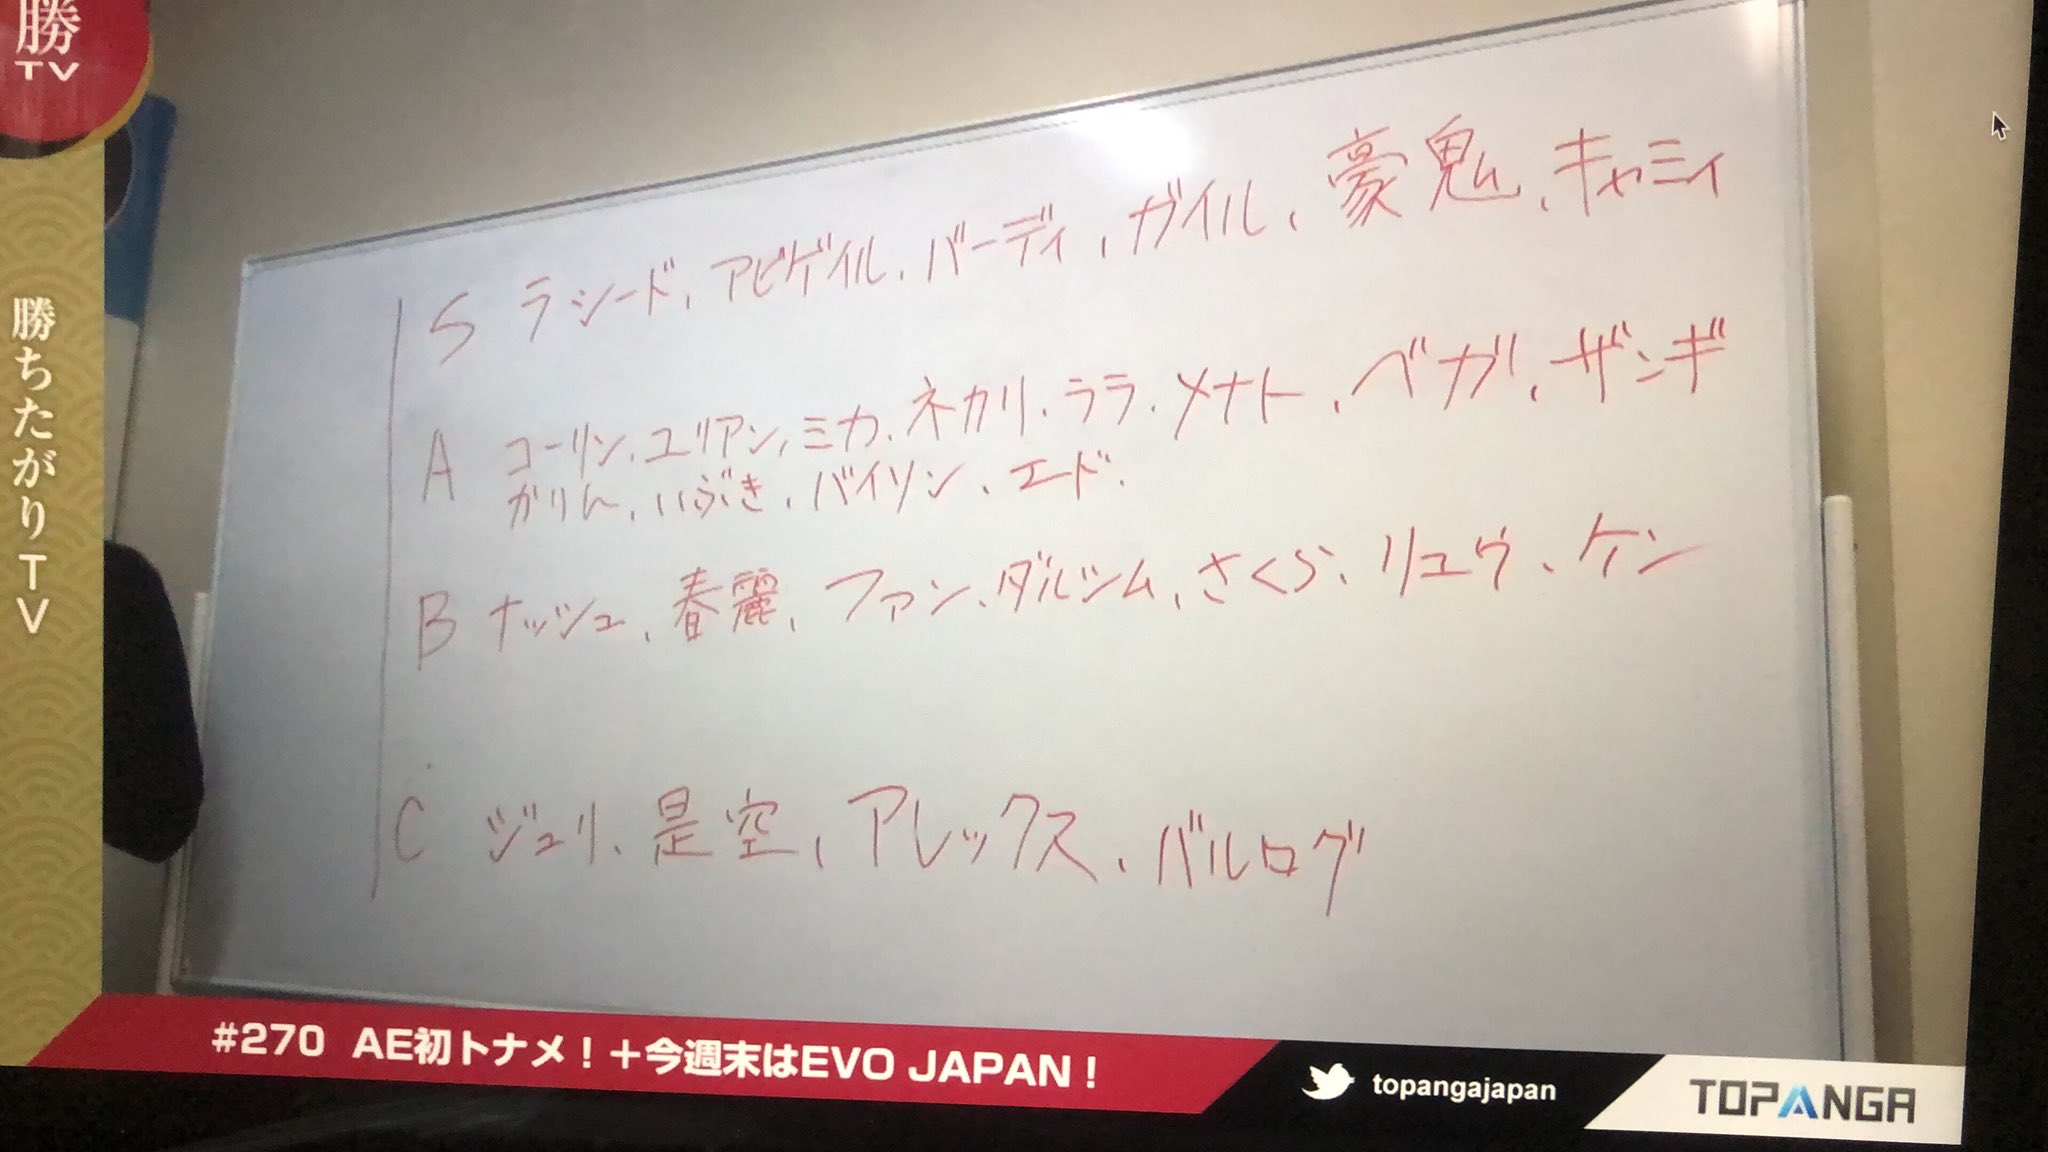 勝
TV
勝ちたがりTV
S ラシード、アビゲイル、バーディ、ガイル、豪鬼、キャミィ
A コーリン、ユリアン、ミカ、ネカリ、ララ、メナト、ベガ、ザンギ
かりん、いぶき、バイソン、エド、
B ナッシュ、春麗、ファン、ダルシム、さくら、リュウ、ケン
C ジュリ、是空、アレックス、バルログ
#270 AE初トナメ！＋今週末はEVO JAPAN！
topangajapan
TOPANGA